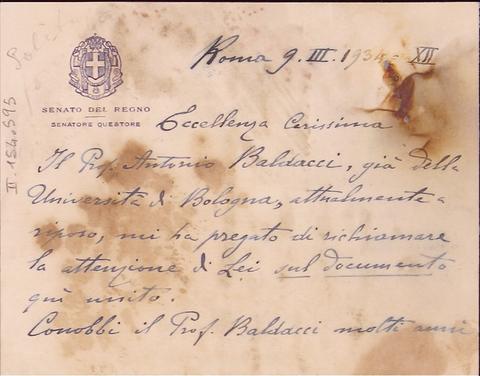 Roma 9. III. 1934 - XII
SENATO DEL REGNO
SENATORE QUESTORE
II.154.595
Eccellenza Carissima
Il Prof. Antonio Baldacci, già della
Università di Bologna, attualmente a
riposo, mi ha pregato di richiamare
la attenzione di Lei sul documento
quì unito.
Conobbi il Prof. Baldacci molti anni